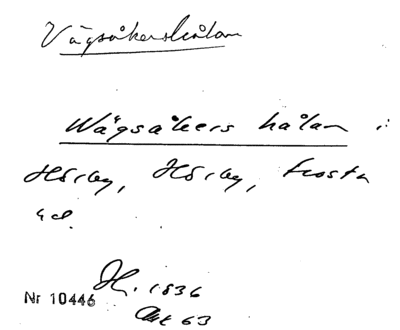 Vägsåkershålan
Wägsåkers hålan i
Hörby, Hörby, Frosta
hd.
H. 1836
Akt 63
Nr 10446